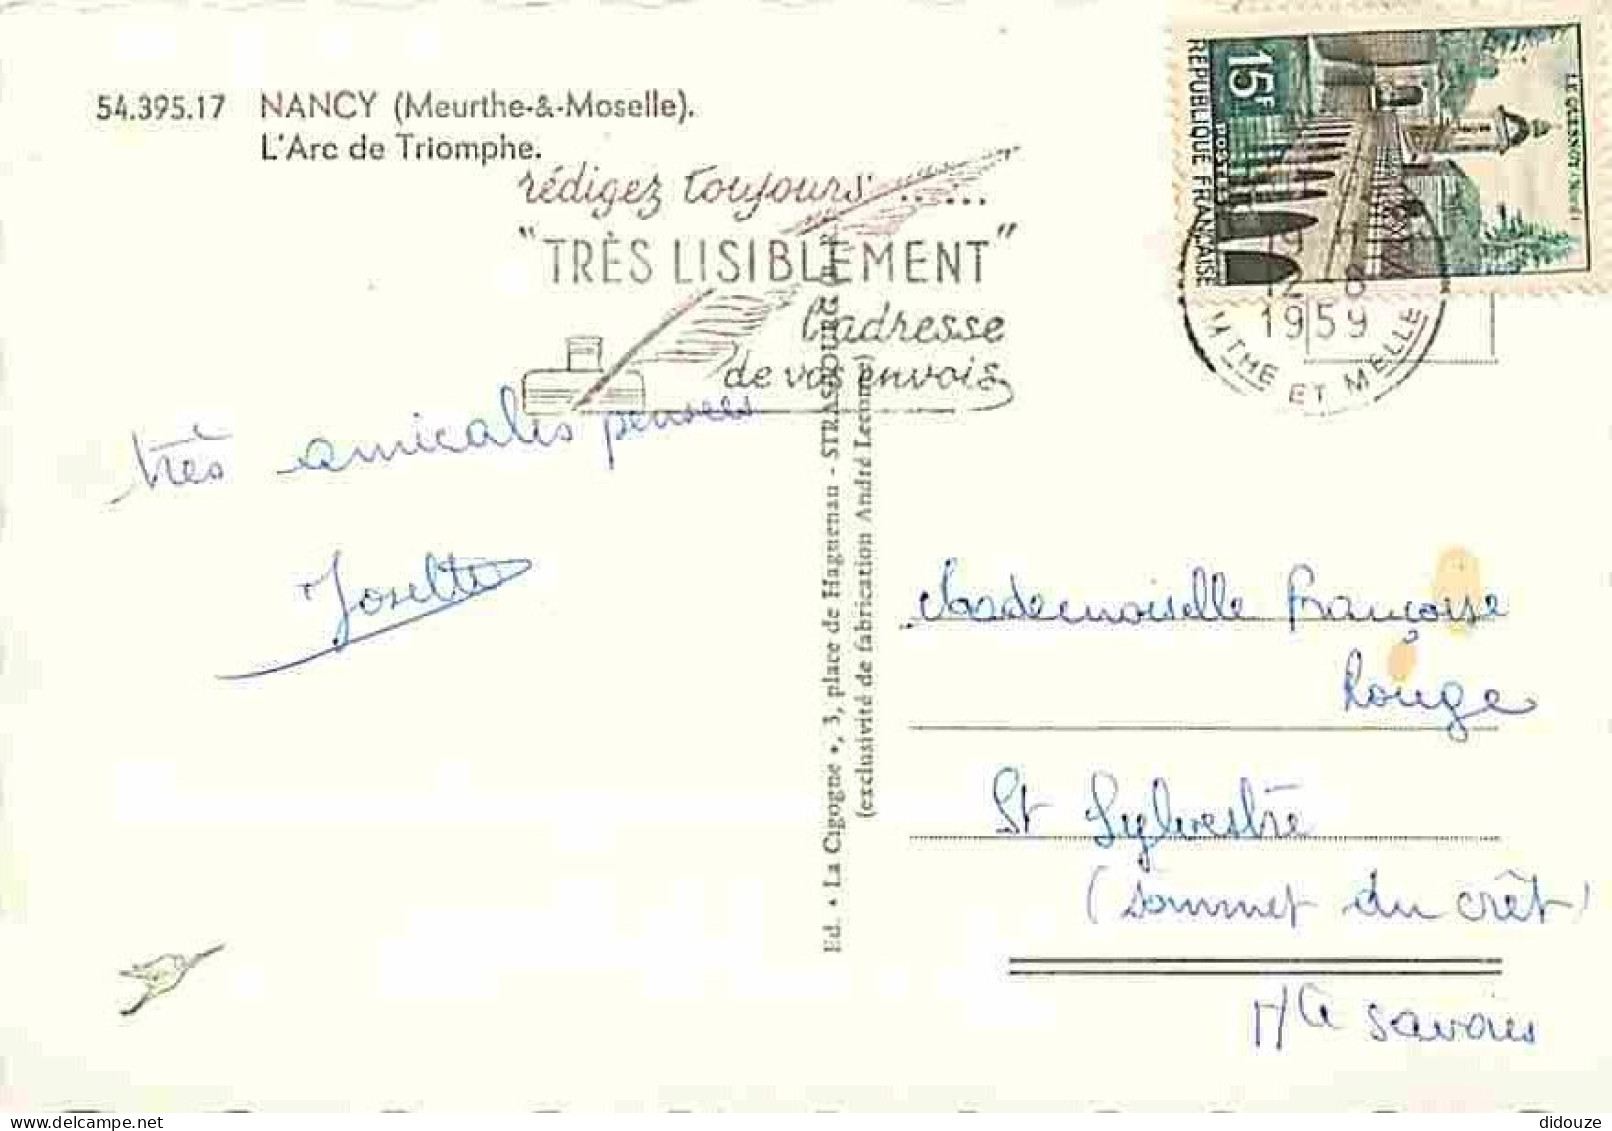 54.395.17 NANCY (Meurthe-&-Moselle).
L'Arc de Triomphe.
rédigez toujours ......
"TRÈS LISIBLEMENT"
l'adresse
de vos envois
15F
POSTES
REPUBLIQUE FRANÇAISE
LE QUESNOY (Nord)
19
12-8
1959
MTHE ET MELLE
très amicales pensées
Josette
Ed. • La Cigogne •, 3, place de Haguenau - STRASBOURG
(exclusivité de fabrication André Leconte)
Mademoiselle Françoise
Rouge
St Sylvestre
(sommet du crêt)
Hte savoie
www.delcampe.net
didouze